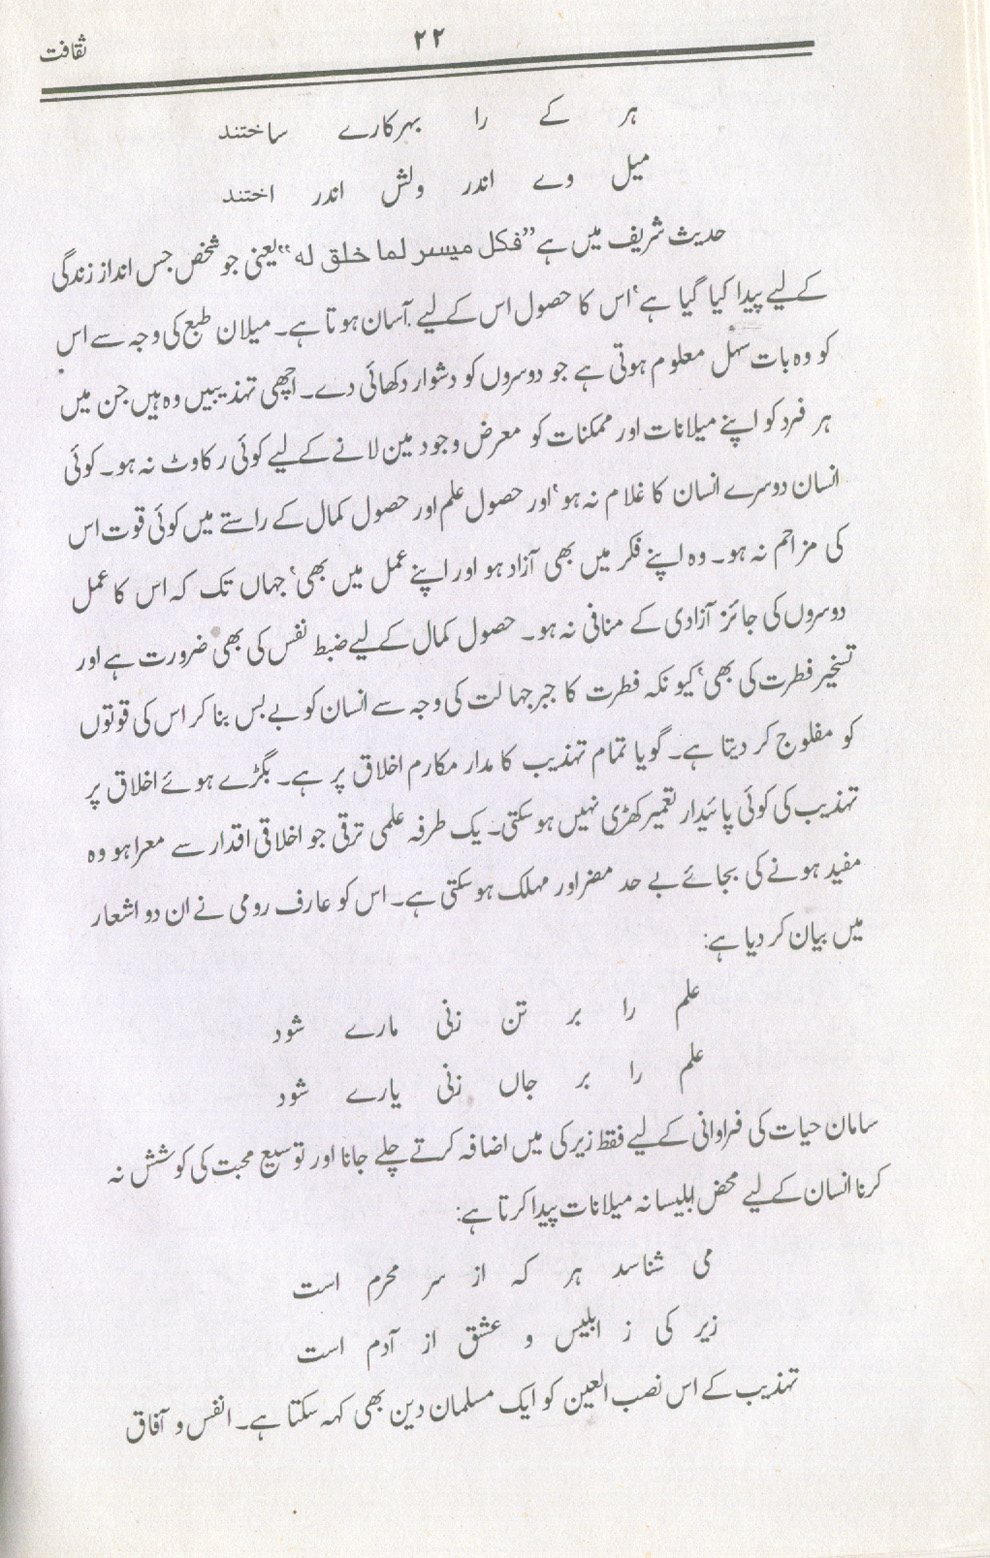 ثقافت ۲۲
ہر کے را بہرکارے ساختند
میل وے اندر ولش اندر اختند
حدیث شریف میں ہے ”فکل میسر لما خلق له“ یعنی جو شخص جس انداز زندگی
کے لیے پیدا کیا گیا ہے‘ اس کا حصول اس کے لیے آسان ہوتا ہے۔ میلان طبع کی وجہ سے اس
کو وہ بات سہل معلوم ہوتی ہے جو دوسروں کو دشوار دکھائی دے۔ اچھی تہذیبیں وہ ہیں جن میں
ہر فرد کو اپنے میلانات اور ممکنات کو معرض وجود مین لانے کے لیے کوئی رکاوٹ نہ ہو۔ کوئی
انسان دوسرے انسان کا غلام نہ ہو‘ اور حصول علم اور حصول کمال کے راستے میں کوئی قوت اس
کی مزاحم نہ ہو۔ وہ اپنے فکر میں بھی آزاد ہو اور اپنے عمل میں بھی‘ جہاں تک کہ اس کا عمل
دوسروں کی جائز آزادی کے منافی نہ ہو۔ حصول کمال کے لیے ضبط نفس کی بھی ضرورت ہے اور
تسخیر فطرت کی بھی‘ کیونکہ فطرت کا جبر جہالت کی وجہ سے انسان کو بے بس بنا کر اس کی قوتوں
کو مفلوج کر دیتا ہے۔ گویا تمام تہذیب کا مدار مکارم اخلاق پر ہے۔ بگڑے ہوئے اخلاق پر
تہذیب کی کوئی پائیدار تعمیر کھڑی نہیں ہو سکتی۔ یک طرفہ علمی ترقی جو اخلاقی اقدار سے معرا ہو وہ
مفید ہونے کی بجائے بے حد مضر اور مہلک ہو سکتی ہے۔ اس کو عارف رومی نے ان دو اشعار
میں بیان کر دیا ہے:
علم را بر تن زنی مارے شود
علم را بر جاں زنی یارے شود
سامان حیات کی فراوانی کے لیے فقط زیرکی میں اضافہ کرتے چلے جانا اور توسیع محبت کی کوشش نہ
کرنا انسان کے لیے محض ابلیسانہ میلانات پیدا کرتا ہے:
می شناسد ہر کہ از سر محرم است
زیر کی ز ابلیس و عشق از آدم است
تہذیب کے اس نصب العین کو ایک مسلمان دین بھی کہہ سکتا ہے۔ انفس و آفاق